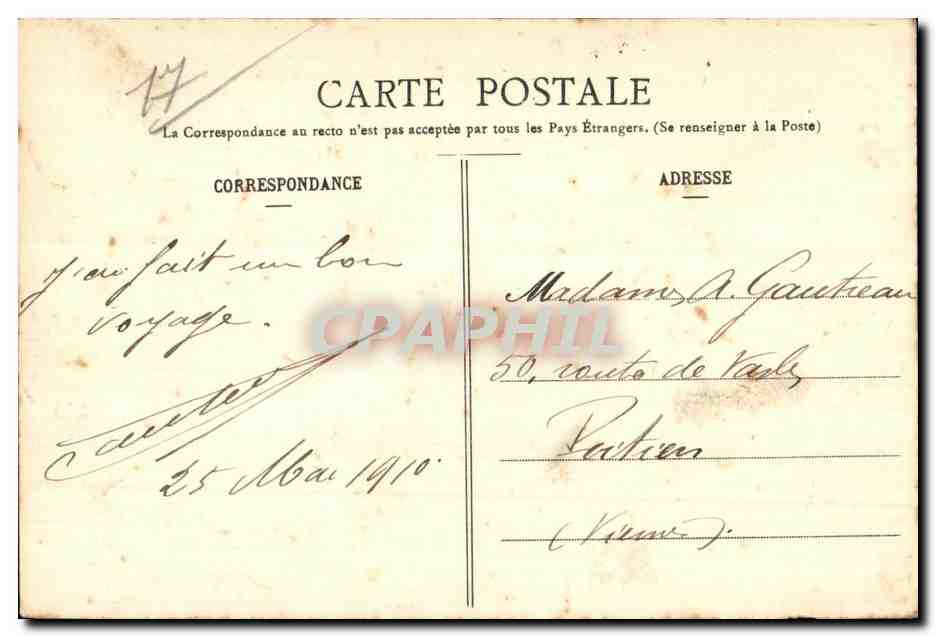 17
CARTE POSTALE
La Correspondance au recto n'est pas acceptée par tous les Pays Étrangers. (Se renseigner à la Poste)
CORRESPONDANCE
J'ai fait un bon
voyage.
25 Mai 1910
ADRESSE
Madame A. Gautreau
50, route de
Poitiers
(Vienne).
CPAPHIL